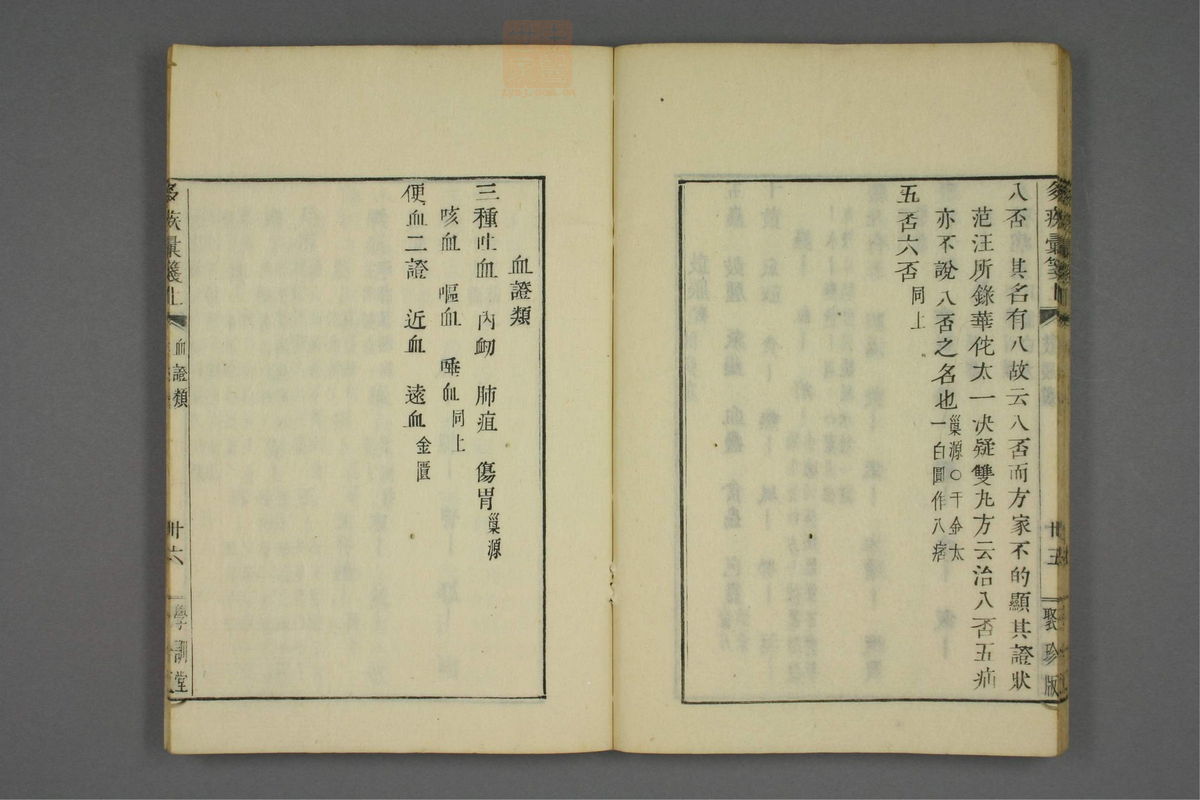 多疾彙箋上
廿五
聚珍版
八否 其名有八故云八否而方家不的顯其證狀
范汪所錄華佗太一决疑雙丸方云治八否五疝
亦不說八否之名也巢源○千金太
一白圓作八痞
五否六否同上
血證類
三種吐血 內衂 肺疽 傷胃巢源
咳血 嘔血 唾血同上
便血二證 近血 遠血金匱
多疾彙箋上
血證類
卅六
學訓堂